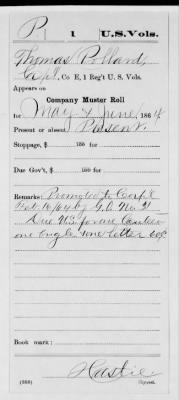 P | 1 | U.S. Vols.
Thomas Pollard,
Corpl., Co. E, 1 Reg't U. S. Vols.
Appears on
Company Muster Roll
for May & June, 1864.
Present or absent Present.
Stoppage, $ 100 for
Due Gov't, $ 100 for
Remarks: Promoted to Corp'l
by G.O. No
Due U.S. for one Canteen
one Eagle one letter
Book mark:
Hastie
(358) Copyist.